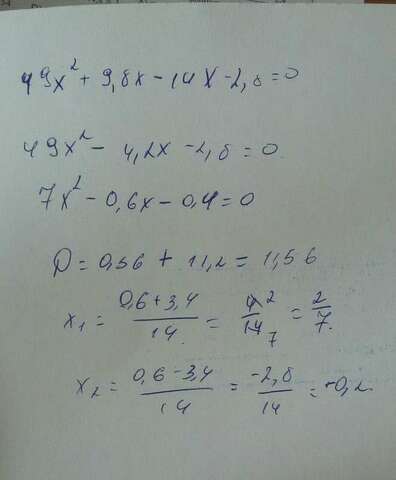 49x² + 9,8x - 14x - 2,8 = 0
49x² - 4,2x - 2,8 = 0.
7x² - 0,6x - 0,4 = 0
D = 0,36 + 11,2 = 11,56
x₁ = (0,6 + 3,4)/14 = 4/14 = 2/7.
x₂ = (0,6 - 3,4)/14 = -2,8/14 = -0,2.